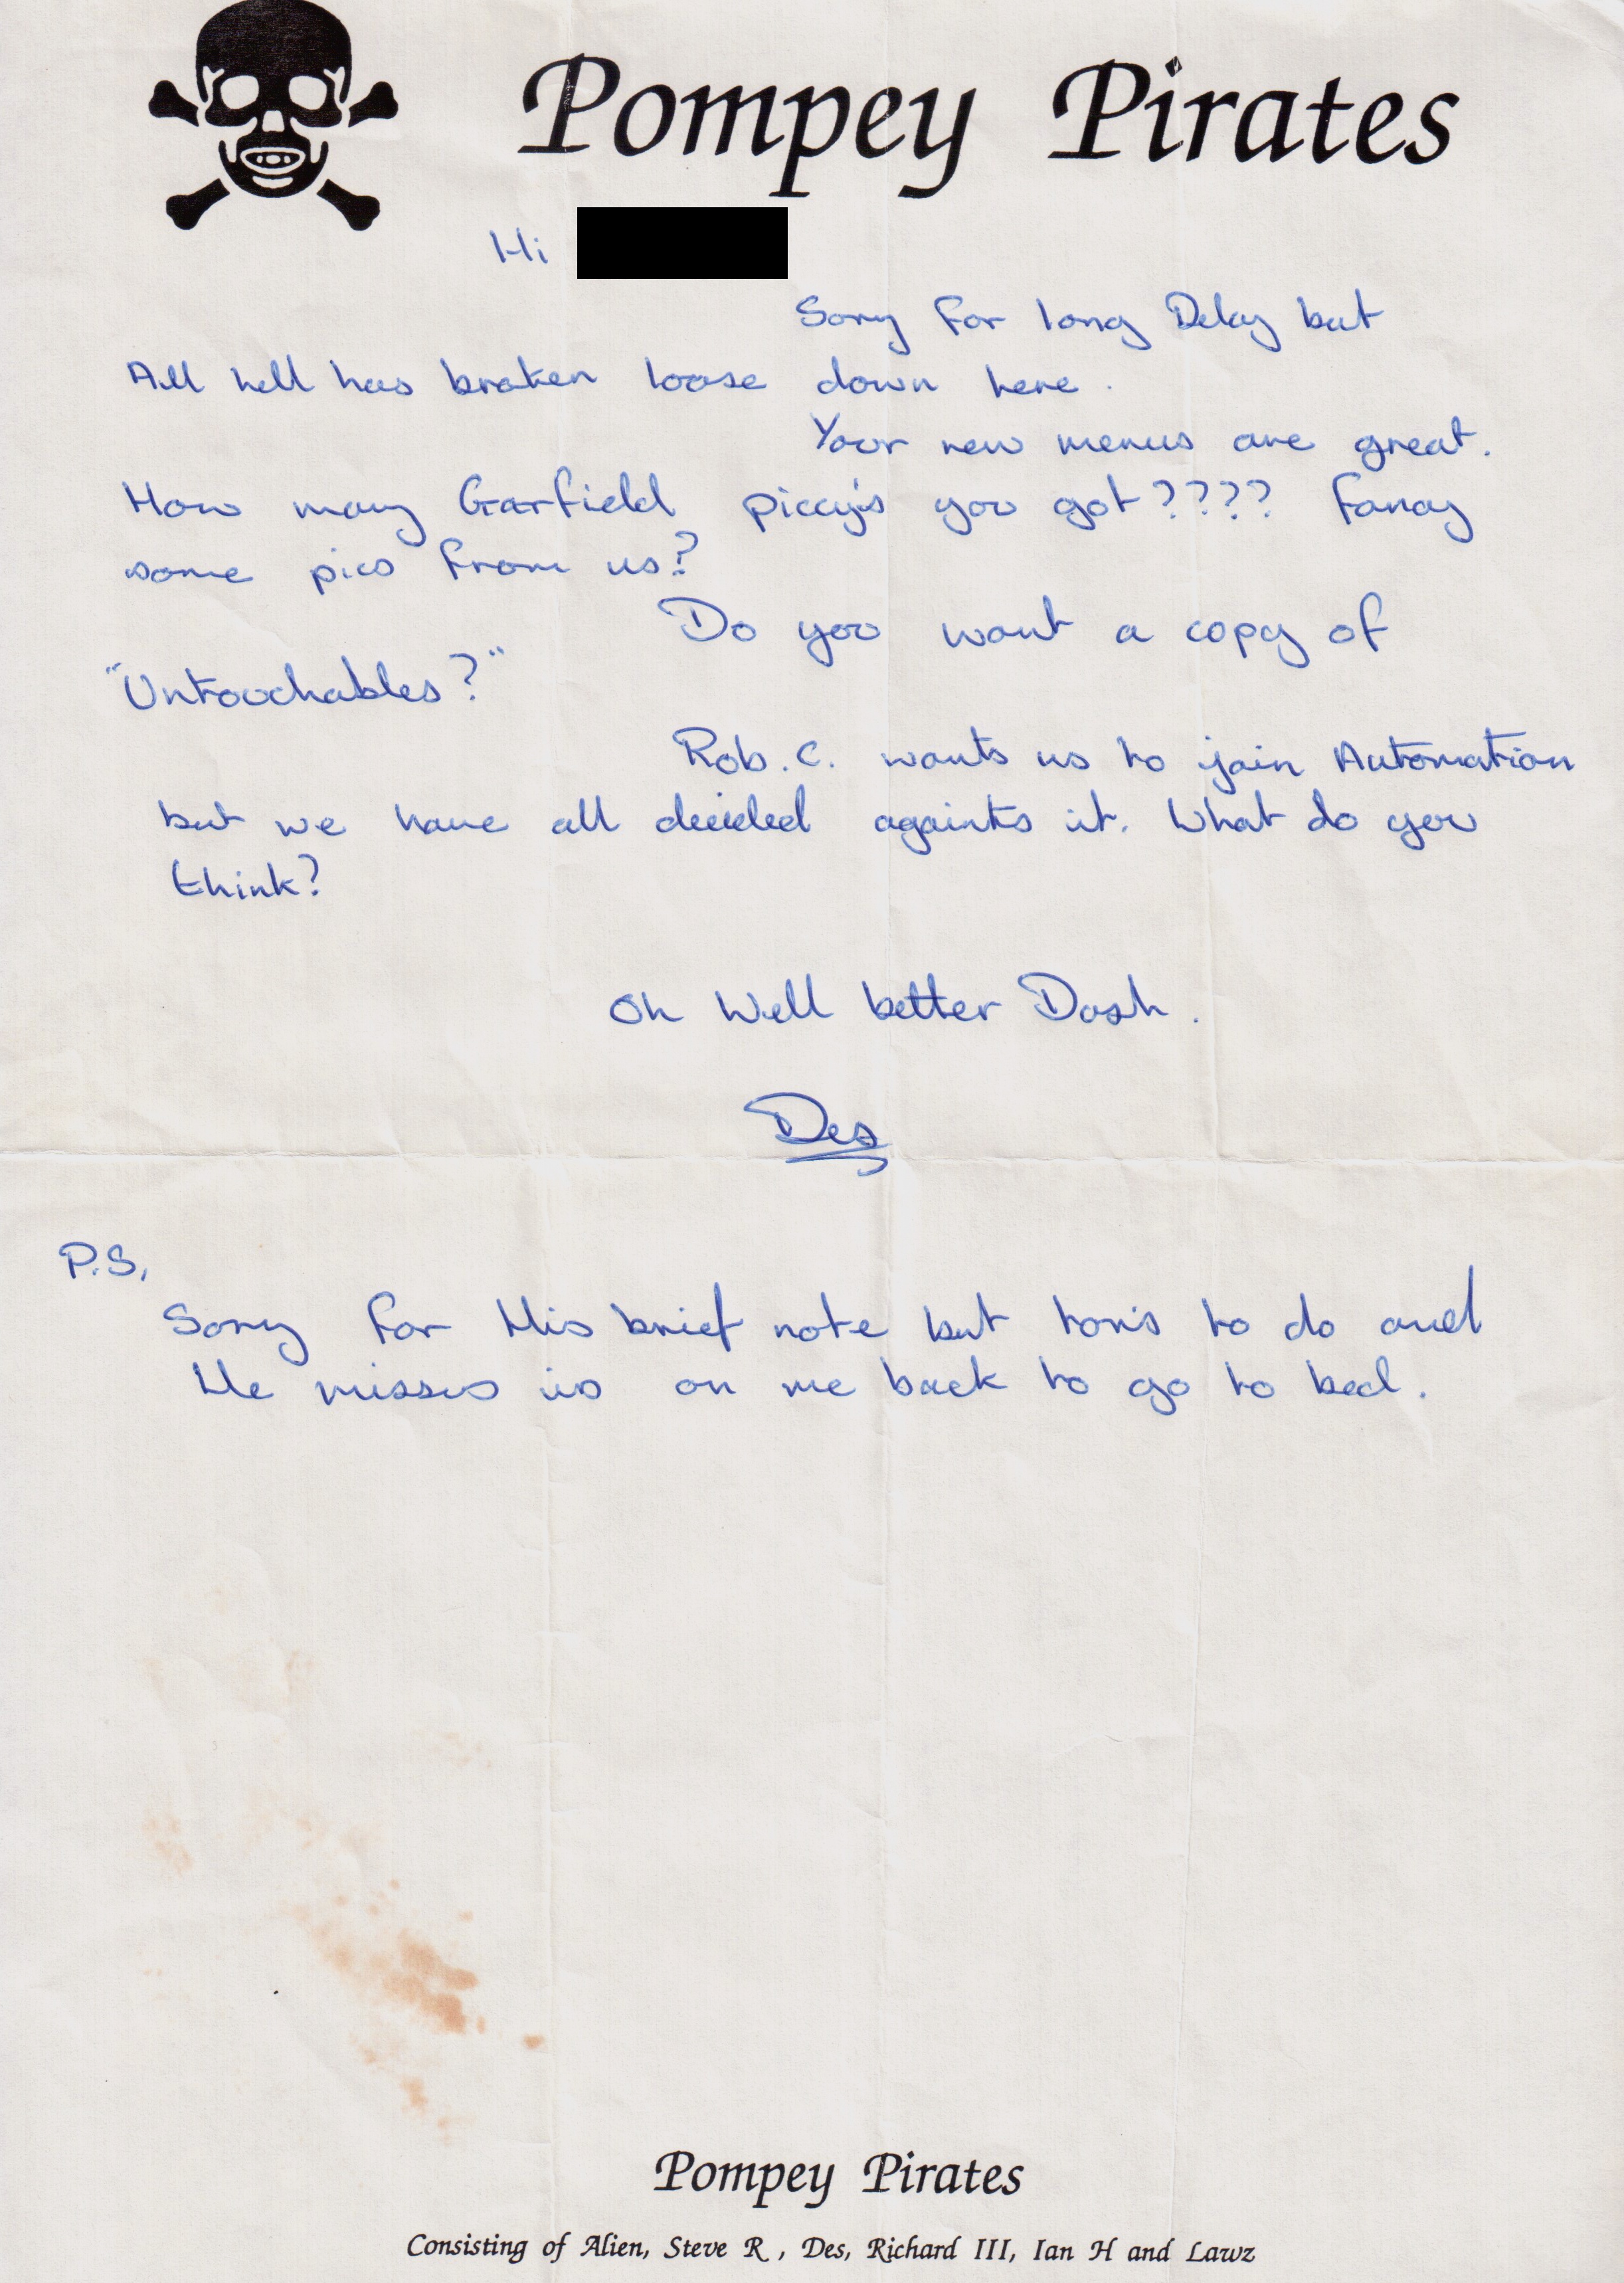 Pompey Pirates
Hi
Sorry for long Delay but
All hell has broken loose down here.
Your new menus are great.
How many Garfield piccy's you got???? Fancy
some pics from us?
Do you want a copy of
"Untouchables?"
Rob.C. wants us to join Automation
but we have all decided againts it. What do you
think?
Oh Well better Dash.
Des
P.S,
Sorry for this brief note but ton's to do and
the missus is on me back to go to bed.
Pompey Pirates
Consisting of Alien, Steve R , Des, Richard III, Ian H and Lawz